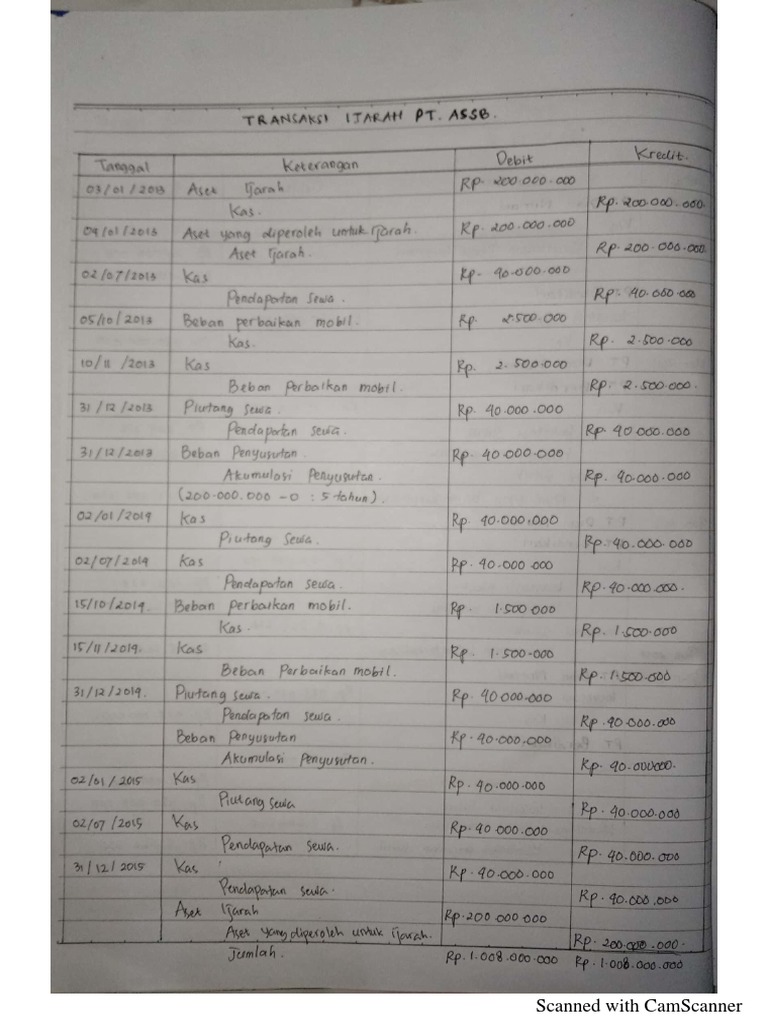 TRANSAKSI IJARAH PT. ASSB.
Tanggal Keterangan Debit Kredit.
03/01/2013 Aset Ijarah Rp. 200.000.000
Kas. Rp. 200.000.000
04/01/2013 Aset yang diperoleh untuk Ijarah. Rp. 200.000.000
Aset Ijarah Rp. 200.000.000
02/07/2013 Kas Rp. 40.000.000
Pendapatan Sewa. Rp. 40.000.000
05/10/2013 Beban perbaikan mobil. Rp. 2.500.000
Kas. Rp. 2.500.000
10/11/2013 Kas Rp. 2.500.000
Beban Perbaikan mobil. Rp. 2.500.000
31/12/2013 Piutang sewa. Rp. 40.000.000
Pendapatan sewa. Rp. 40.000.000
31/12/2013 Beban Penyusutan Rp. 40.000.000
Akumulasi Penyusutan. Rp. 40.000.000
(200.000.000 - 0 : 5 tahun).
02/01/2014 Kas Rp. 40.000.000
Piutang Sewa. Rp. 40.000.000
02/07/2014 Kas Rp. 40.000.000
Pendapatan sewa. Rp. 40.000.000.
15/10/2014. Beban perbaikan mobil. Rp. 1.500.000
Kas. Rp. 1.500.000
15/11/2014. Kas Rp. 1.500.000
Beban Perbaikan mobil. Rp. 1.500.000
31/12/2014. Piutang sewa. Rp. 40.000.000
Pendapatan sewa. Rp. 40.000.000
Beban Penyusutan Rp. 40.000.000
Akumulasi Penyusutan. Rp. 40.000000.
02/01/2015 Kas Rp. 40.000.000
Piutang sewa Rp. 40.000.000
02/07/2015 Kas Rp. 40.000.000
Pendapatan sewa. Rp. 40.000.000
31/12/2015 Kas Rp. 40.000.000
Pendapatan sewa. Rp. 40.000.000
Aset Ijarah Rp. 200.000.000
Aset yang diperoleh untuk Ijarah. Rp. 200.000.000.
Jumlah. Rp. 1.008.000.000 Rp. 1.008.000.000
Scanned with CamScanner